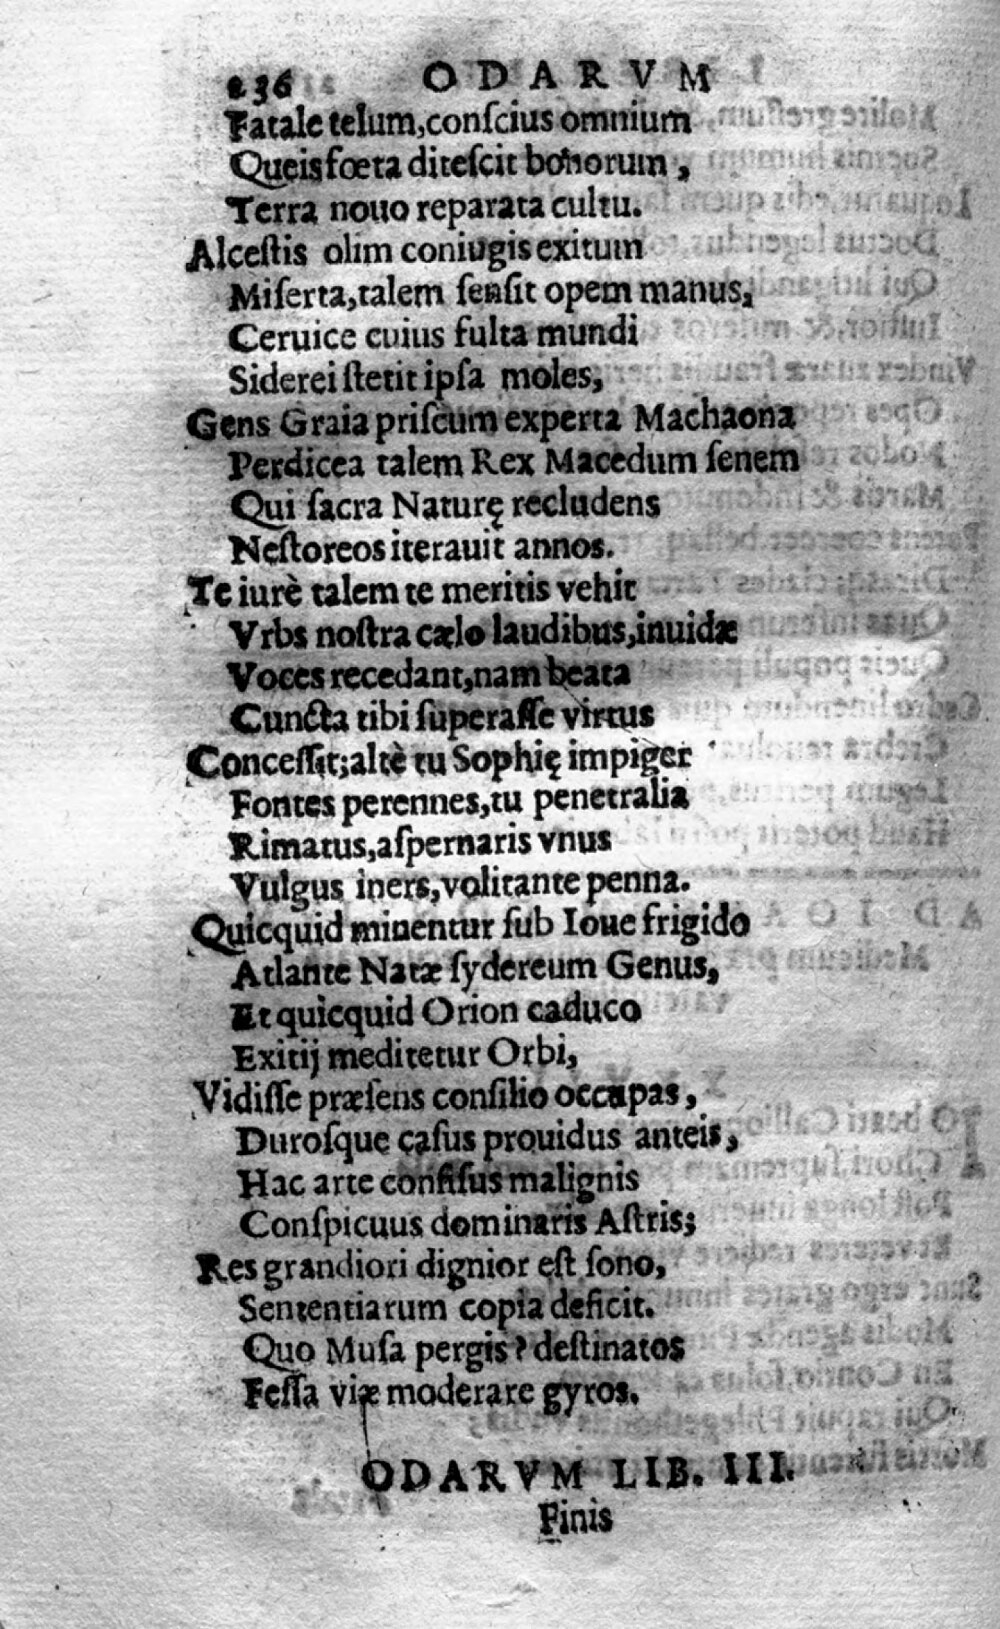 236 ODARVM
Fatale telum, conſcius omnium
Queis fœta diteſcit bonorum,
Terra nouo reparata cultu.
Alceſtis olim coniugis exitum
Miſerta, talem ſenſit opem manus,
Ceruice cuius fulta mundi
Siderei ſtetit ipſa moles,
Gens Graia priſcum experta Machaona
Perdicea talem Rex Macedum ſenem
Qui ſacra Naturę recludens
Neſtoreos iterauit annos.
Te iurè talem te meritis vehit
Vrbs noſtra cælo laudibus, inuidæ
Voces recedant, nam beata
Cuncta tibi ſuperaſſe virtus
Conceſſit; altè tu Sophię impiger
Fontes perennes, tu penetralia
Rimatus, aſpernaris vnus
Vulgus iners, volitante penna.
Quicquid minentur ſub Ioue frigido
Atlante Natæ ſydereum Genus,
Et quicquid Orion caduco
Exitij meditetur Orbi,
Vidiſſe præſens conſilio occupas,
Duroſque caſus prouidus anteis,
Hac arte confiſus malignis
Conſpicuus dominaris Aſtris;
Res grandiori dignior eſt ſono,
Sententiarum copia deficit.
Quo Muſa pergis? deſtinatos
Feſſa viæ moderare gyros.
ODARVM LIB. III.
Finis